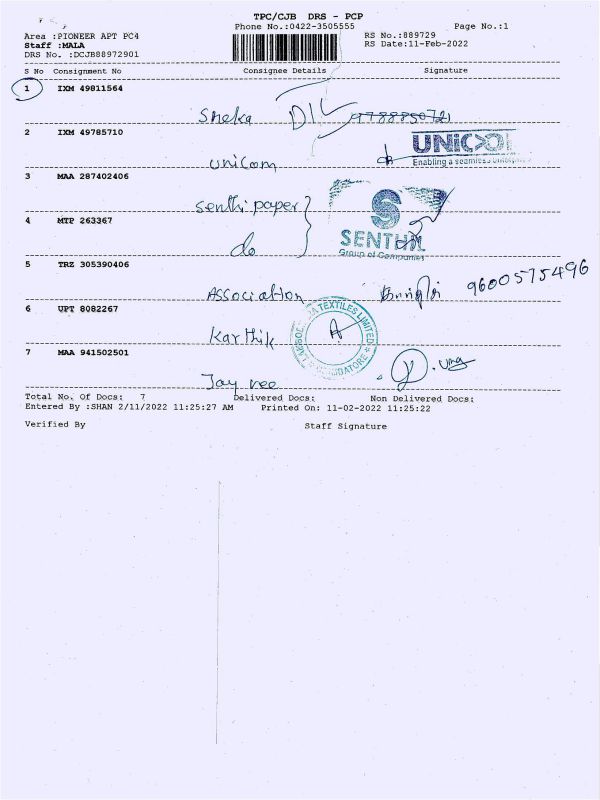 TPC/CJB DRS - PCP
Phone No.:0422-3505555 Page No.:1
Area :PIONEER APT PC4 RS No.:889729
Staff :MALA RS Date:11-Feb-2022
DRS No. :DCJB88972901
S No Consignment No Consignee Details Signature
1 IXM 49811564
Sneka DIL
2 IXM 49785710 UNIC
unicom Enabling a seamless
3 MAA 287402406
senthi paper
4 MTP 263367 S
do SENTHIL
Group of Companies
5 TRZ 305390406
Association 9600575496
6 UPT 8082267 TEXTILES LIMITED
Karthik
7 MAA 941502501
Jay nee uma
Total No. Of Docs: 7 Delivered Docs: Non Delivered Docs:
Entered By :SHAN 2/11/2022 11:25:27 AM Printed On: 11-02-2022 11:25:22
Verified By Staff Signature